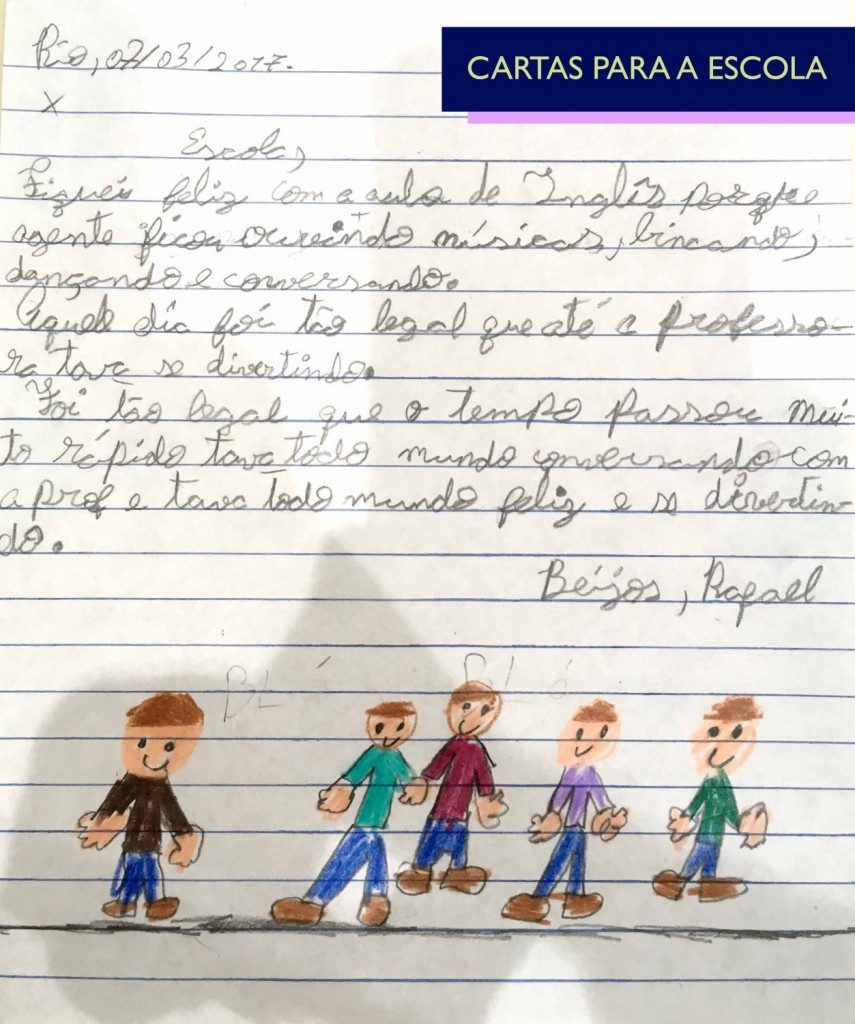 CARTAS PARA A ESCOLA
Rio, 07/03/2017.
X
Escola,
Fiquei feliz com a aula de Inglês porque
agente ficou ouvindo músicas, brincando,
dançando e conversando.
Aquele dia foi tão legal que até a professo-
ra tava se divertindo.
Foi tão legal que o tempo passou mui-
to rápido tava todo mundo conversando com
a prof e tava todo mundo feliz e se divertin-
do.
Beijos, Rafael
BLá BLá